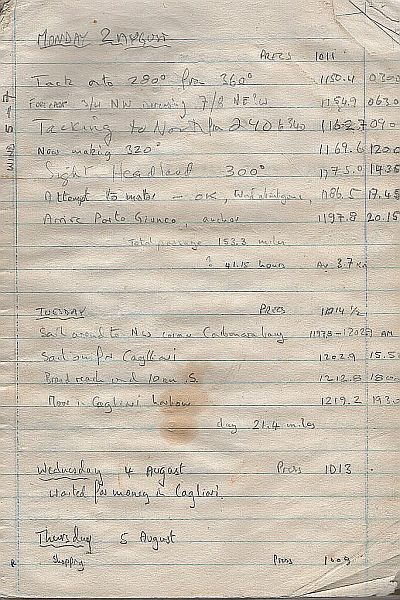 MONDAY 2 AUGUST
PRESS 1011
Tack onto 280° from 360° 1150.4 0300
FORECAST 3/4 NW increasing 7/8 NE & W 1154.9 0630
Tacking to North from 240 & 340 1162.7 090
Now making 320° 1169.6 1200
Sight Headland 300° 1175.0 1435
Attempt to motor – OK, 1186.5 17.45
Arrive Porto Giunco, anchor 1197.8 20.15
Total passage 153.3 miles
? 41.15 hours Av. 3.7 Kn
WIND 5–7
TUESDAY PRESS 1014 ½
Sail around to NW corner Carbonara bay AM
Sail on for Cagliari 1202.9 15.5
Broad reach wind 10 kn S. 1212.8 1800
Moor in Cagliari harbour 1219.2 193.0
day 21.4 miles
Wednesday 4 August Press 1013
Waited for money in Cagliari.
Thursday 5 August
Shopping Press 1009